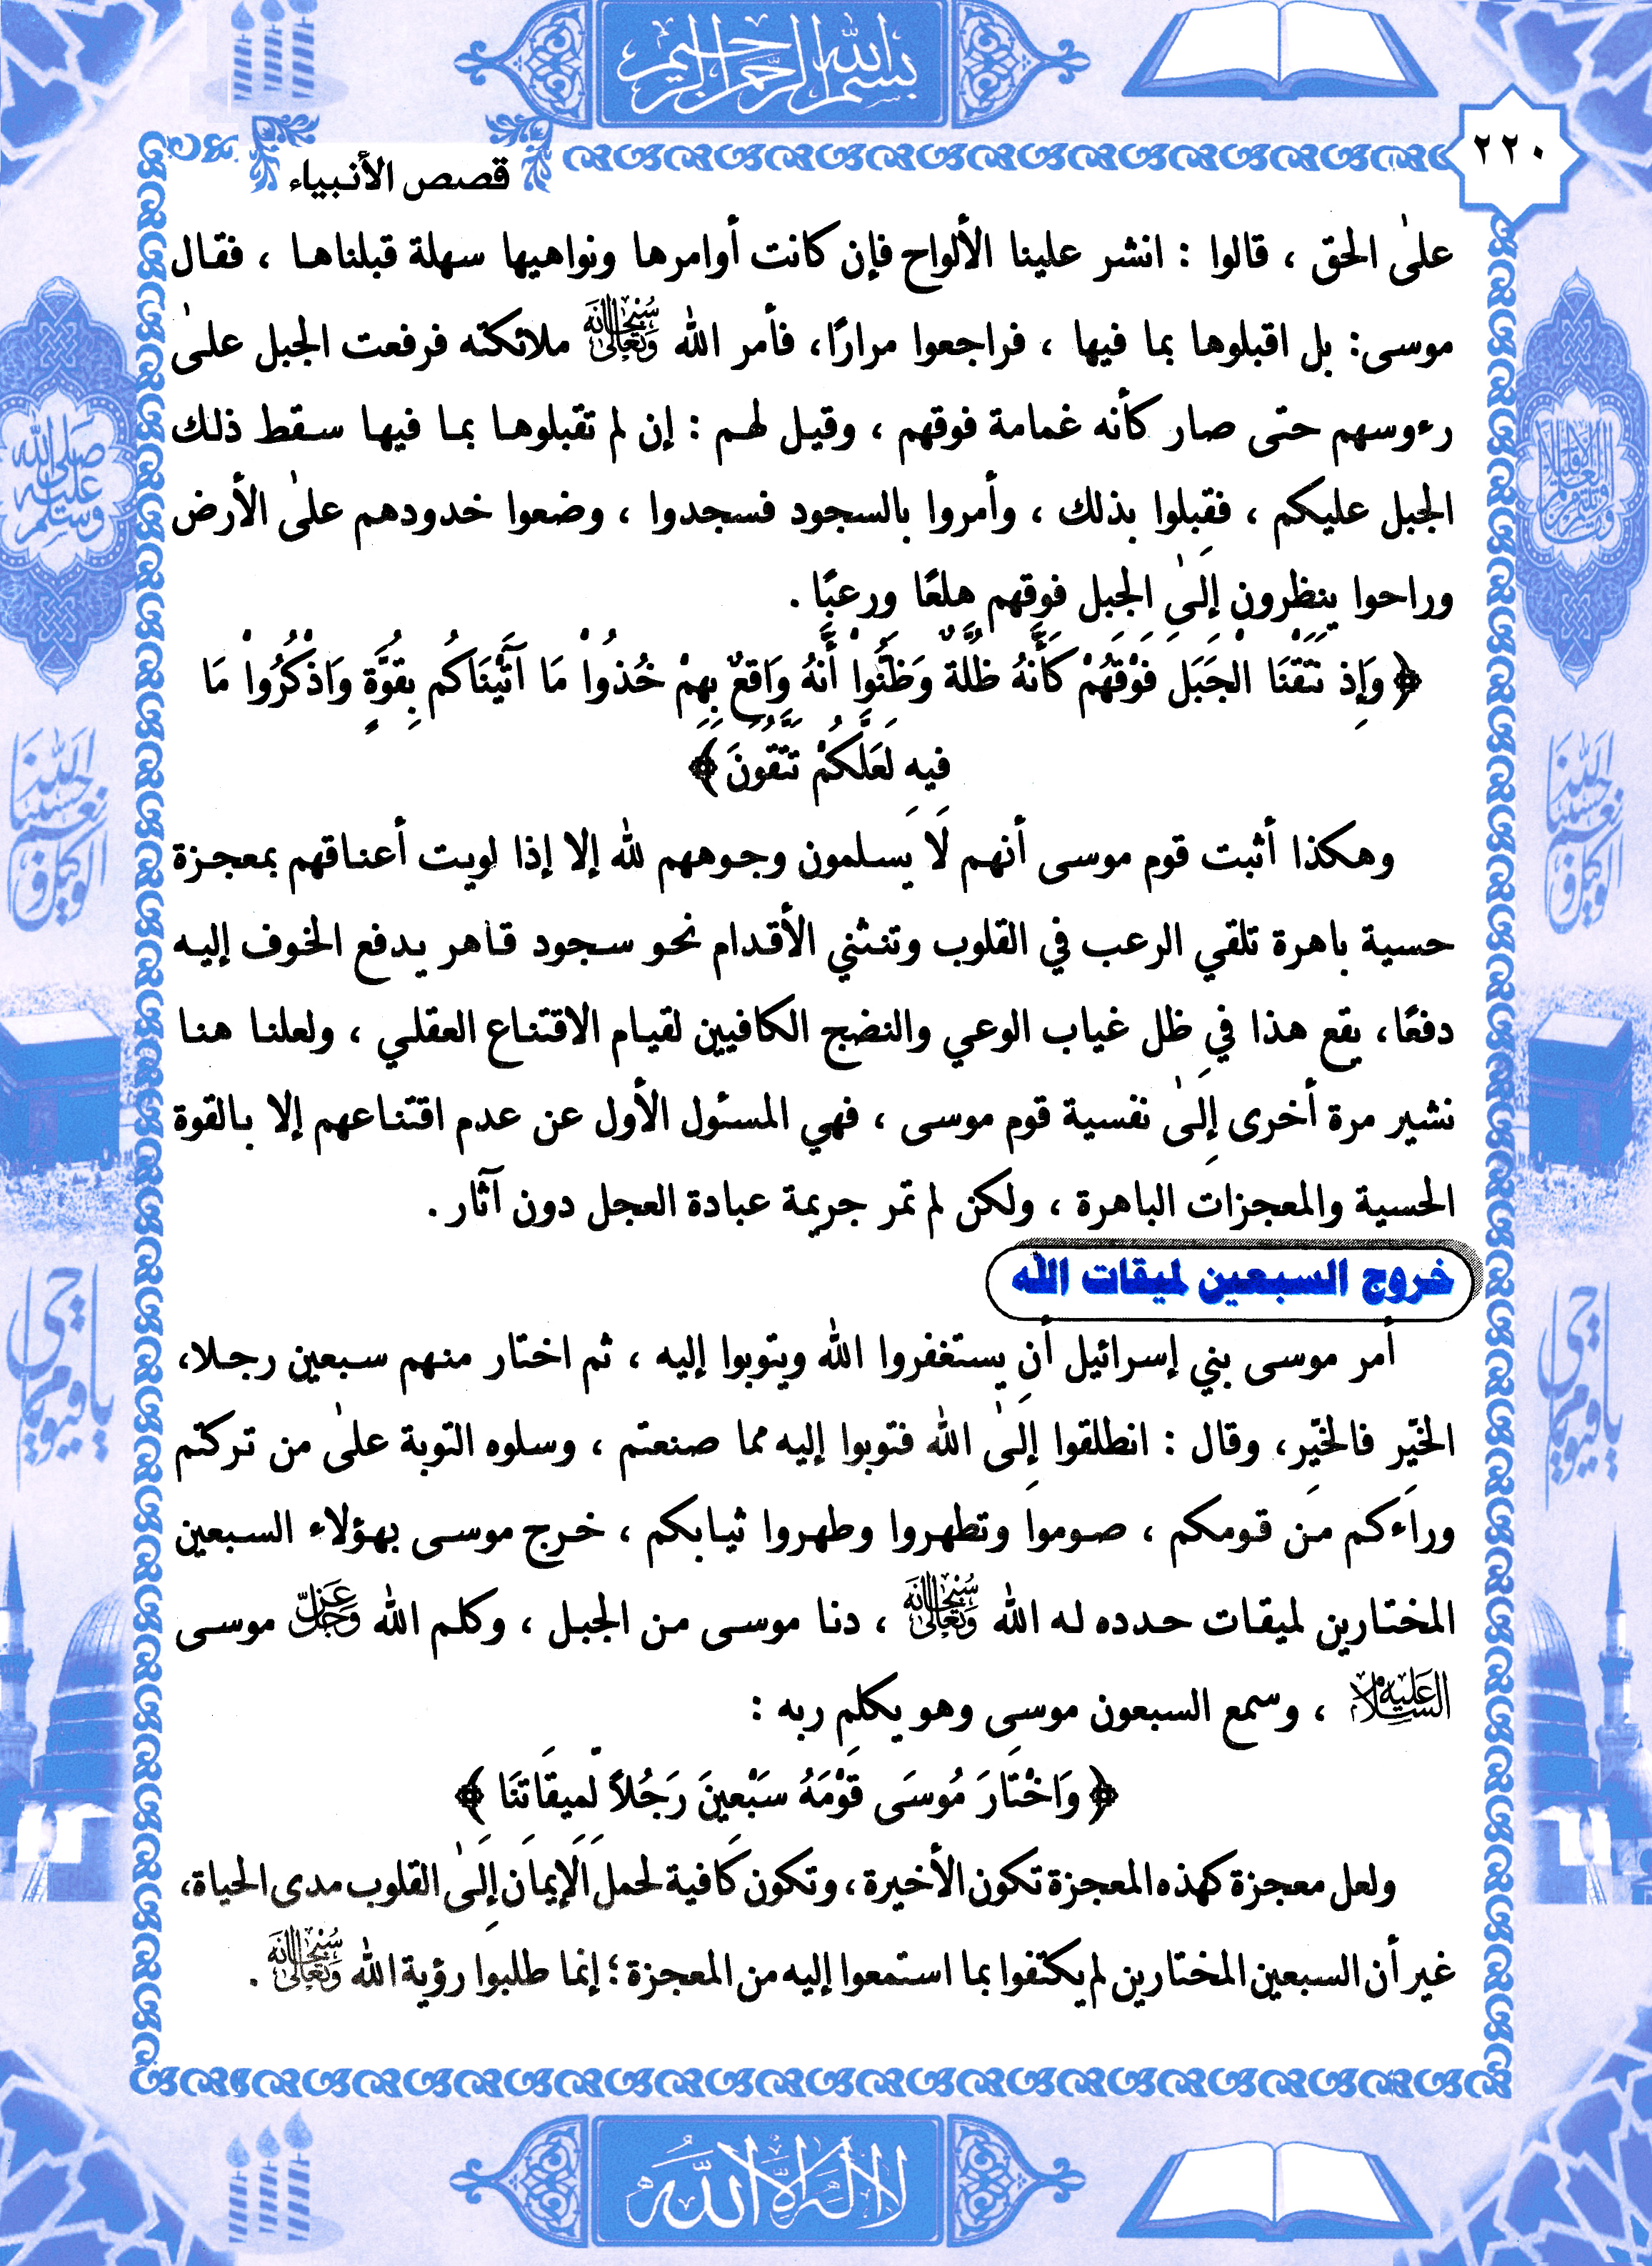 بسم الله الرحمن الرحيم
٢٢٠
قصص الأنبياء
علىٰ الحق ، قالوا : انشر علينا الألواح فإن كانت أوامرها ونواهيها سهلة قبلناها ، فقال
موسى: بل اقبلوها بما فيها ، فراجعوا مرارًا، فأمر الله سُبْحَانَهُ وَتَعَالَىٰ ملائكته فرفعت الجبل علىٰ
رءوسهم حتى صار كأنه غمامة فوقهم ، وقيل لهم : إن لم تقبلوها بما فيها سقط ذلك
الجبل عليكم ، فقبلوا بذلك ، وأمروا بالسجود فسجدوا ، وضعوا خدودهم علىٰ الأرض
وراحوا ينظرون إلىٰ الجبل فوقهم هلعًا ورعبًا .
﴿ وَإِذ نَتَقْنَا الْجَبَلَ فَوْقَهُمْ كَأَنَّهُ ظُلَّةٌ وَظَنُّواْ أَنَّهُ وَاقِعٌ بِهِمْ خُذُواْ مَا آتَيْنَاكُم بِقُوَّةٍ وَاذْكُرُواْ مَا
فِيهِ لَعَلَّكُمْ تَتَّقُونَ ﴾
وهكذا أثبت قوم موسى أنهم لَا يسلمون وجوههم لله إلا إذا لويت أعناقهم بمعجزة
حسية باهرة تلقي الرعب في القلوب وتنثني الأقدام نحو سجود قاهر يدفع الخوف إليه
دفعًا، يقع هذا في ظل غياب الوعي والنضج الكافيين لقيام الاقتناع العقلي ، ولعلنا هنا
نشير مرة أخرى إلىٰ نفسية قوم موسى ، فهي المسئول الأول عن عدم اقتناعهم إلا بالقوة
الحسية والمعجزات الباهرة ، ولكن لم تمر جريمة عبادة العجل دون آثار .
خروج السبعين لميقات الله
أمر موسى بني إسرائيل أن يستغفروا الله ويتوبوا إليه ، ثم اختار منهم سبعين رجلا،
الخيّر فالخيّر، وقال : انطلقوا إلىٰ الله فتوبوا إليه مما صنعتم ، وسلوه التوبة علىٰ من تركتم
وراءكم من قومكم ، صوموا وتطهروا وطهروا ثيابكم ، خرج موسى بهؤلاء السبعين
المختارين لميقات حدده له الله سُبْحَانَهُ وَتَعَالَىٰ ، دنا موسى من الجبل ، وكلم الله عَزَّ وَجَلَّ موسى
عَلَيْهِ السَّلَام ، وسمع السبعون موسى وهو يكلم ربه :
﴿ وَاخْتَارَ مُوسَى قَوْمَهُ سَبْعِينَ رَجُلاً لِّمِيقَاتِنَا ﴾
ولعل معجزة كهذه المعجزة تكون الأخيرة ، وتكون كافية لحمل الْإِيمَان إلىٰ القلوب مدى الحياة،
غير أن السبعين المختارين لم يكتفوا بما استمعوا إليه من المعجزة ؛ إنما طلبوا رؤية الله سُبْحَانَهُ وَتَعَالَىٰ .
لا إله إلا الله
صلى الله عليه وسلم
حسبنا الله ونعم الوكيل
حسبنا الله ونعم الوكيل
يا حي يا قيوم
يا حي يا قيوم